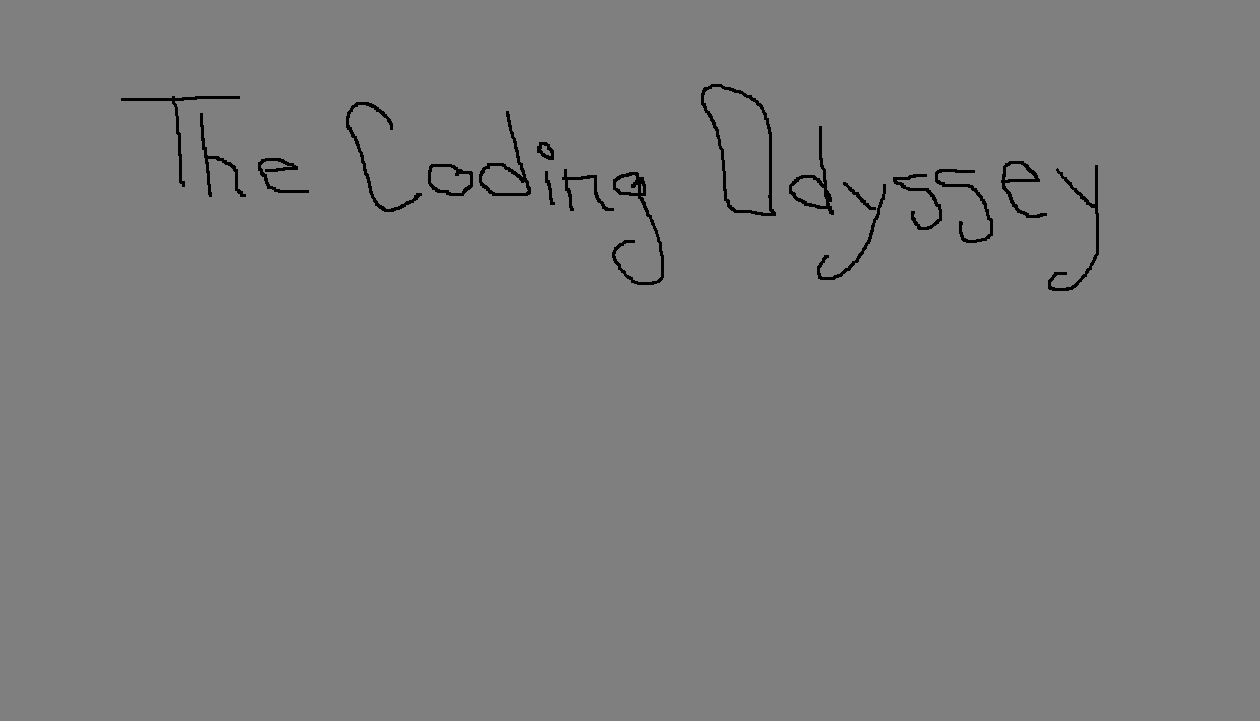 The Coding Odyssey